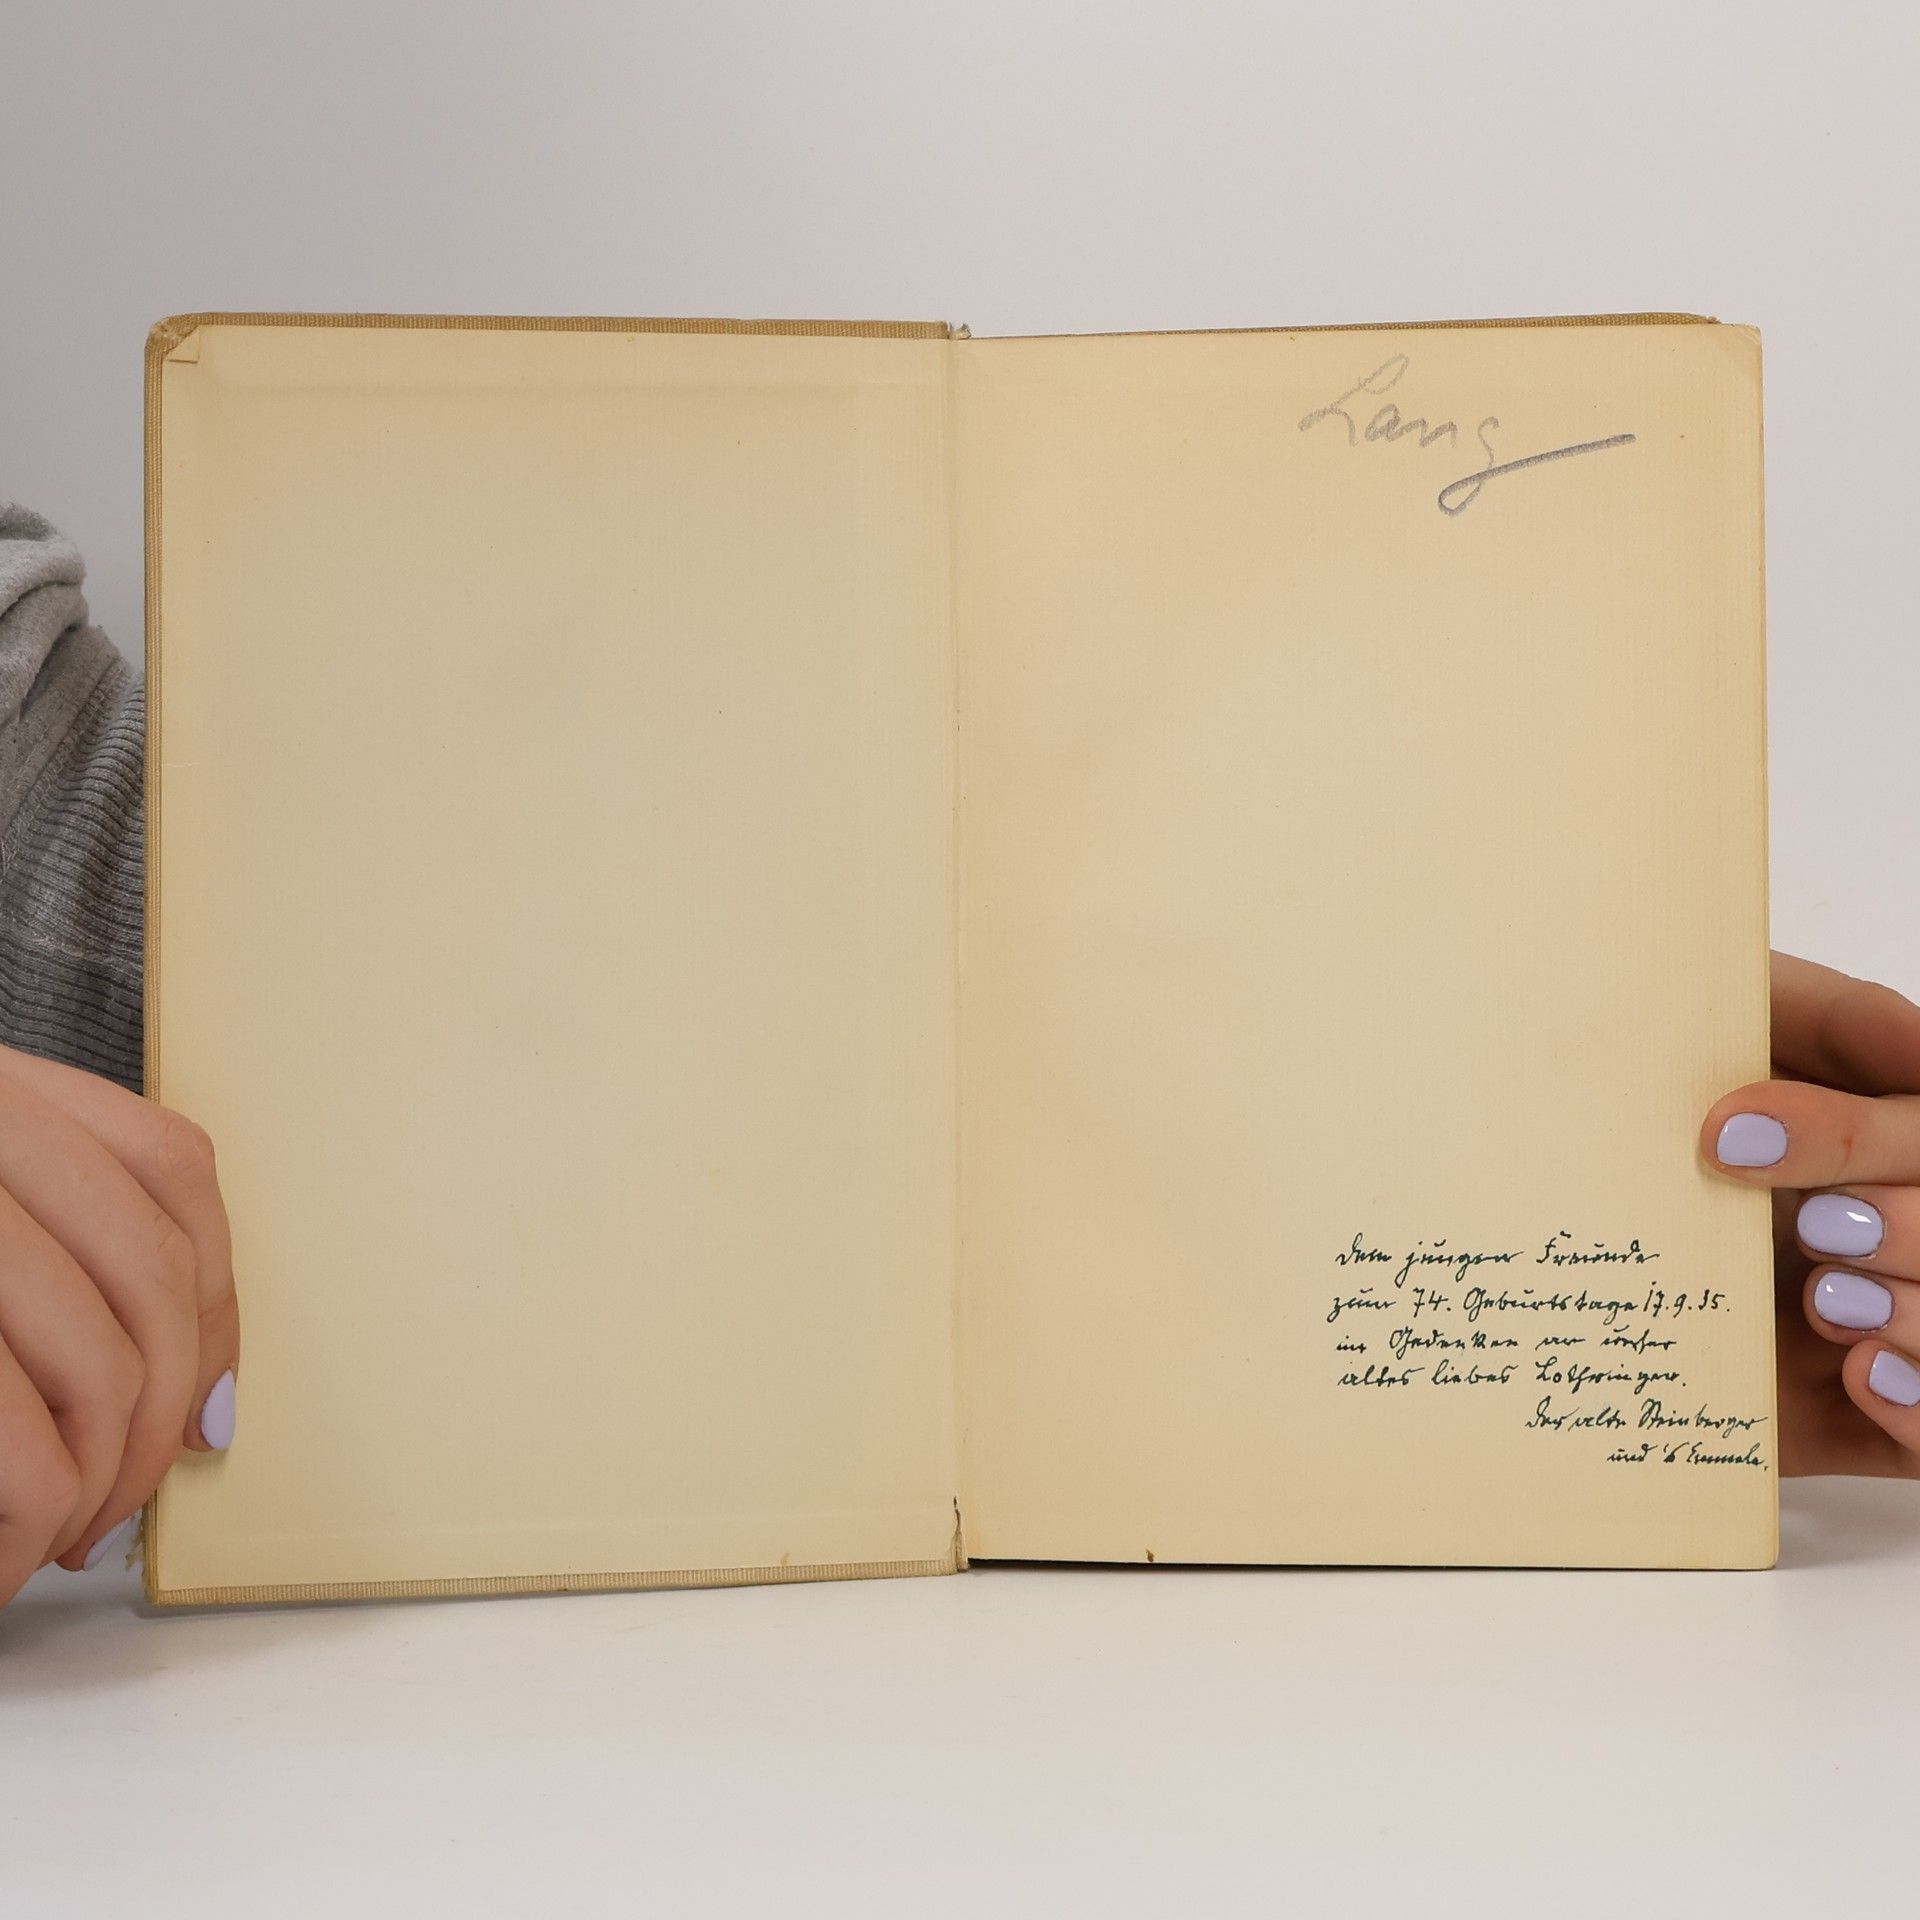 Lang
Dem jungen Freunde
zum 74. Geburtstage 17.9.35.
im Gedenken an unser
altes liebes Lothringen.
Der alte Steinberger
und 's Emmele.